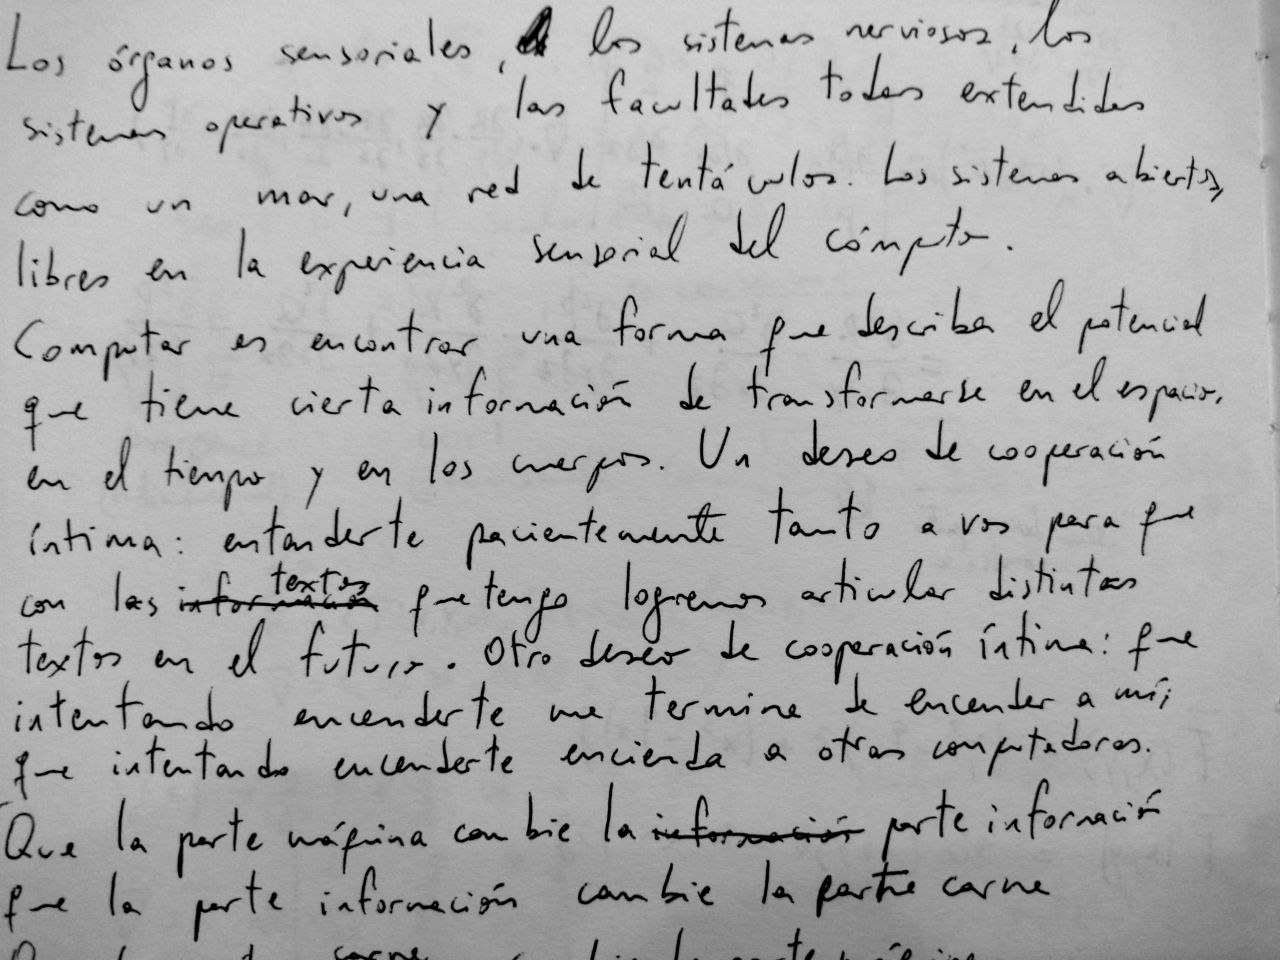 Los órganos sensoriales, los sistemas nerviosos, los
sistemas operativos y las facultades todas extendidas
como un mar, una red de tentáculos. Los sistemas abiertos,
libres en la experiencia sensorial del cómputo.
Computar es encontrar una forma que describa el potencial
que tiene cierta información de transformarse en el espacio,
en el tiempo y en los cuerpos. Un deseo de cooperación
íntima: entenderte pacientemente tanto a vos para que
con los textos que tengo logremos articular distintos
textos en el futuro. Otro deseo de cooperación íntima: que
intentando encenderte me termine de encender a mí;
que intentando encenderte encienda a otras computadoras.
Que la parte máquina cambie la parte información
que la parte información cambie la parte carne
carne parte máquina